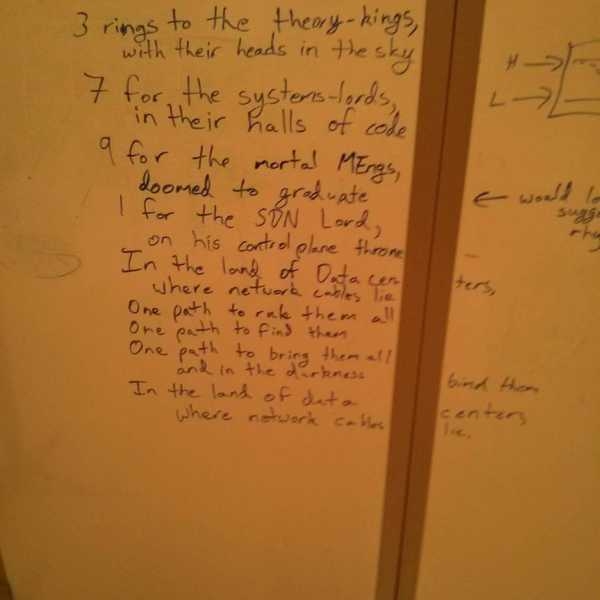 3 rings to the theory-kings,
with their heads in the sky
7 for the systems-lords,
in their halls of code
9 for the mortal MEngs,
doomed to graduate
1 for the SDN Lord,
on his control plane throne
In the land of Data centers,
where network cables lie
One path to rule them all
One path to find them
One path to bring them all
and in the darkness bind them
In the land of data centers
where network cables lie.
H
L
← would